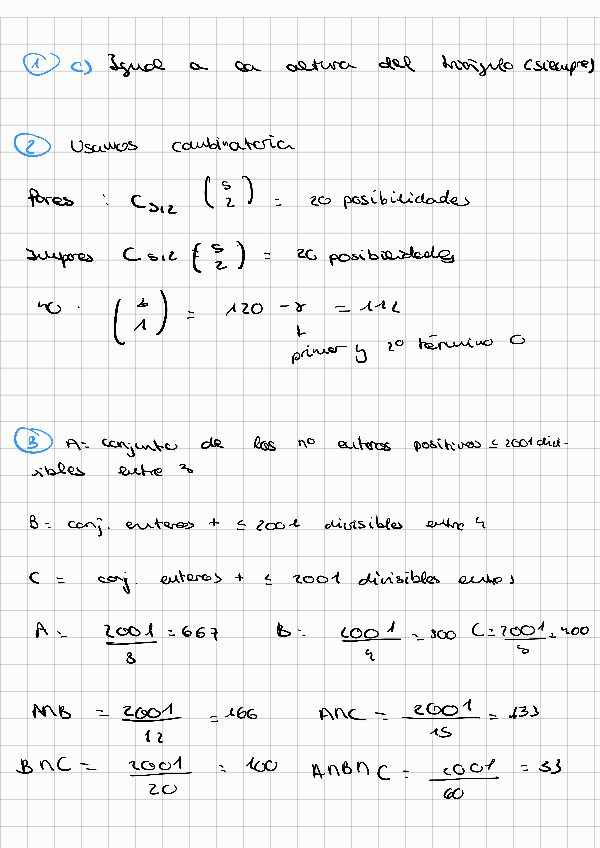 1 c) Igual a la altura del triángulo (siempre)
2 Usamos combinatoria
Pares : C5,2 (5 2) = 20 posibilidades
Impares C5,2 (5 2) = 20 posibilidades
40 · (3 1) = 120 - 8 = 112
primer y 2º término 0
3 A= conjunto de los nº enteros positivos ≤ 2001 divi-
sibles entre 3
B= conj. enteros + ≤ 2001 divisibles entre 4
C = conj enteros + ≤ 2001 divisibles entre 5
A = 2001/3 = 667 B = 2001/4 = 500 C = 2001/5 = 400
A∩B = 2001/12 = 166 A∩C = 2001/15 = 133
B∩C = 2001/20 = 100 A∩B∩C = 2001/60 = 33